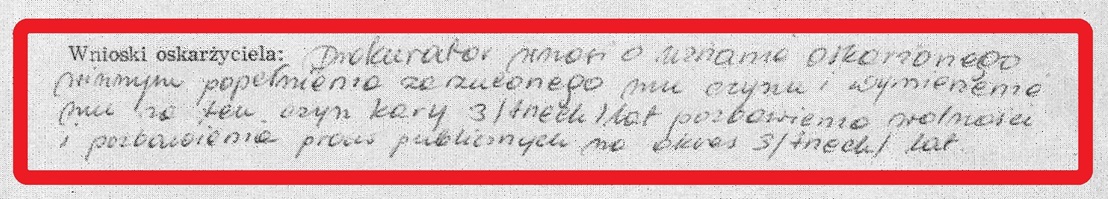 Wnioski oskarżyciela: Prokurator wnosi o uznanie oskarżonego
winnym popełnienia zarzucanego mu czynu i wymierzenie
mu za ten czyn kary 3/trzech/lat pozbawienia wolności
i pozbawienia praw publicznych na okres 3/trzech/ lat.